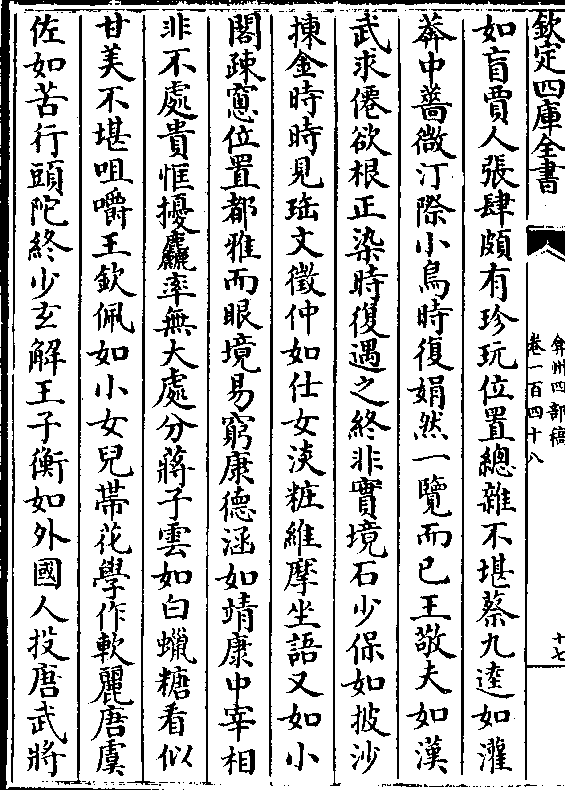 欽定四庫全書
弇州四部稿
卷一百四十八
十七
如盲賈人張肆頗有珍玩位置總雜不堪蔡九逵如灌
莽中薔薇汀際小鳥時復娟然一覽而已王敬夫如漢
武求僊欲根正染時復遇之終非實境石少保如披沙
揀金時時見瑶文徵仲如仕女淡粧維摩坐語又如小
閣疎窻位置都雅而眼境易窮康德涵如靖康中宰相
非不處貴恇擾麤率無大處分蔣子雲如白蠟糖看似
甘美不堪咀嚼王欽佩如小女兒帶花學作軟麗唐虞
佐如苦行頭陀終少玄解王子衡如外國人投唐武將